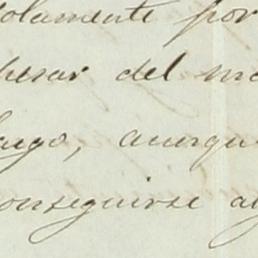 solamente por
pesar del
largo, aunqu
conseguirse